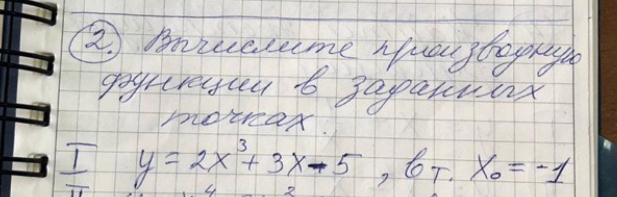 2. Вычислите производную
функции в заданных
точках.
I y = 2x³ + 3x - 5, в т. x₀ = -1
II